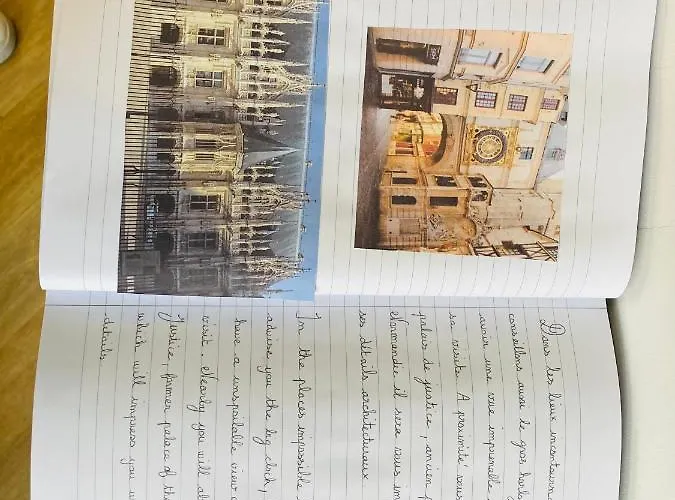 Dans les lieux incontourn
conseillons aussi le gros horl
avoir une vue imprenable
sa visite. A proximité vous
palais de justice, ancien p
Normandie il sera vous im
ses détails architecturaux
In the places impossible
advise you the big clock,
have a unspoilable view o
visit. Nearby you will al
Justice, former palace of the
which will impress you w
details.